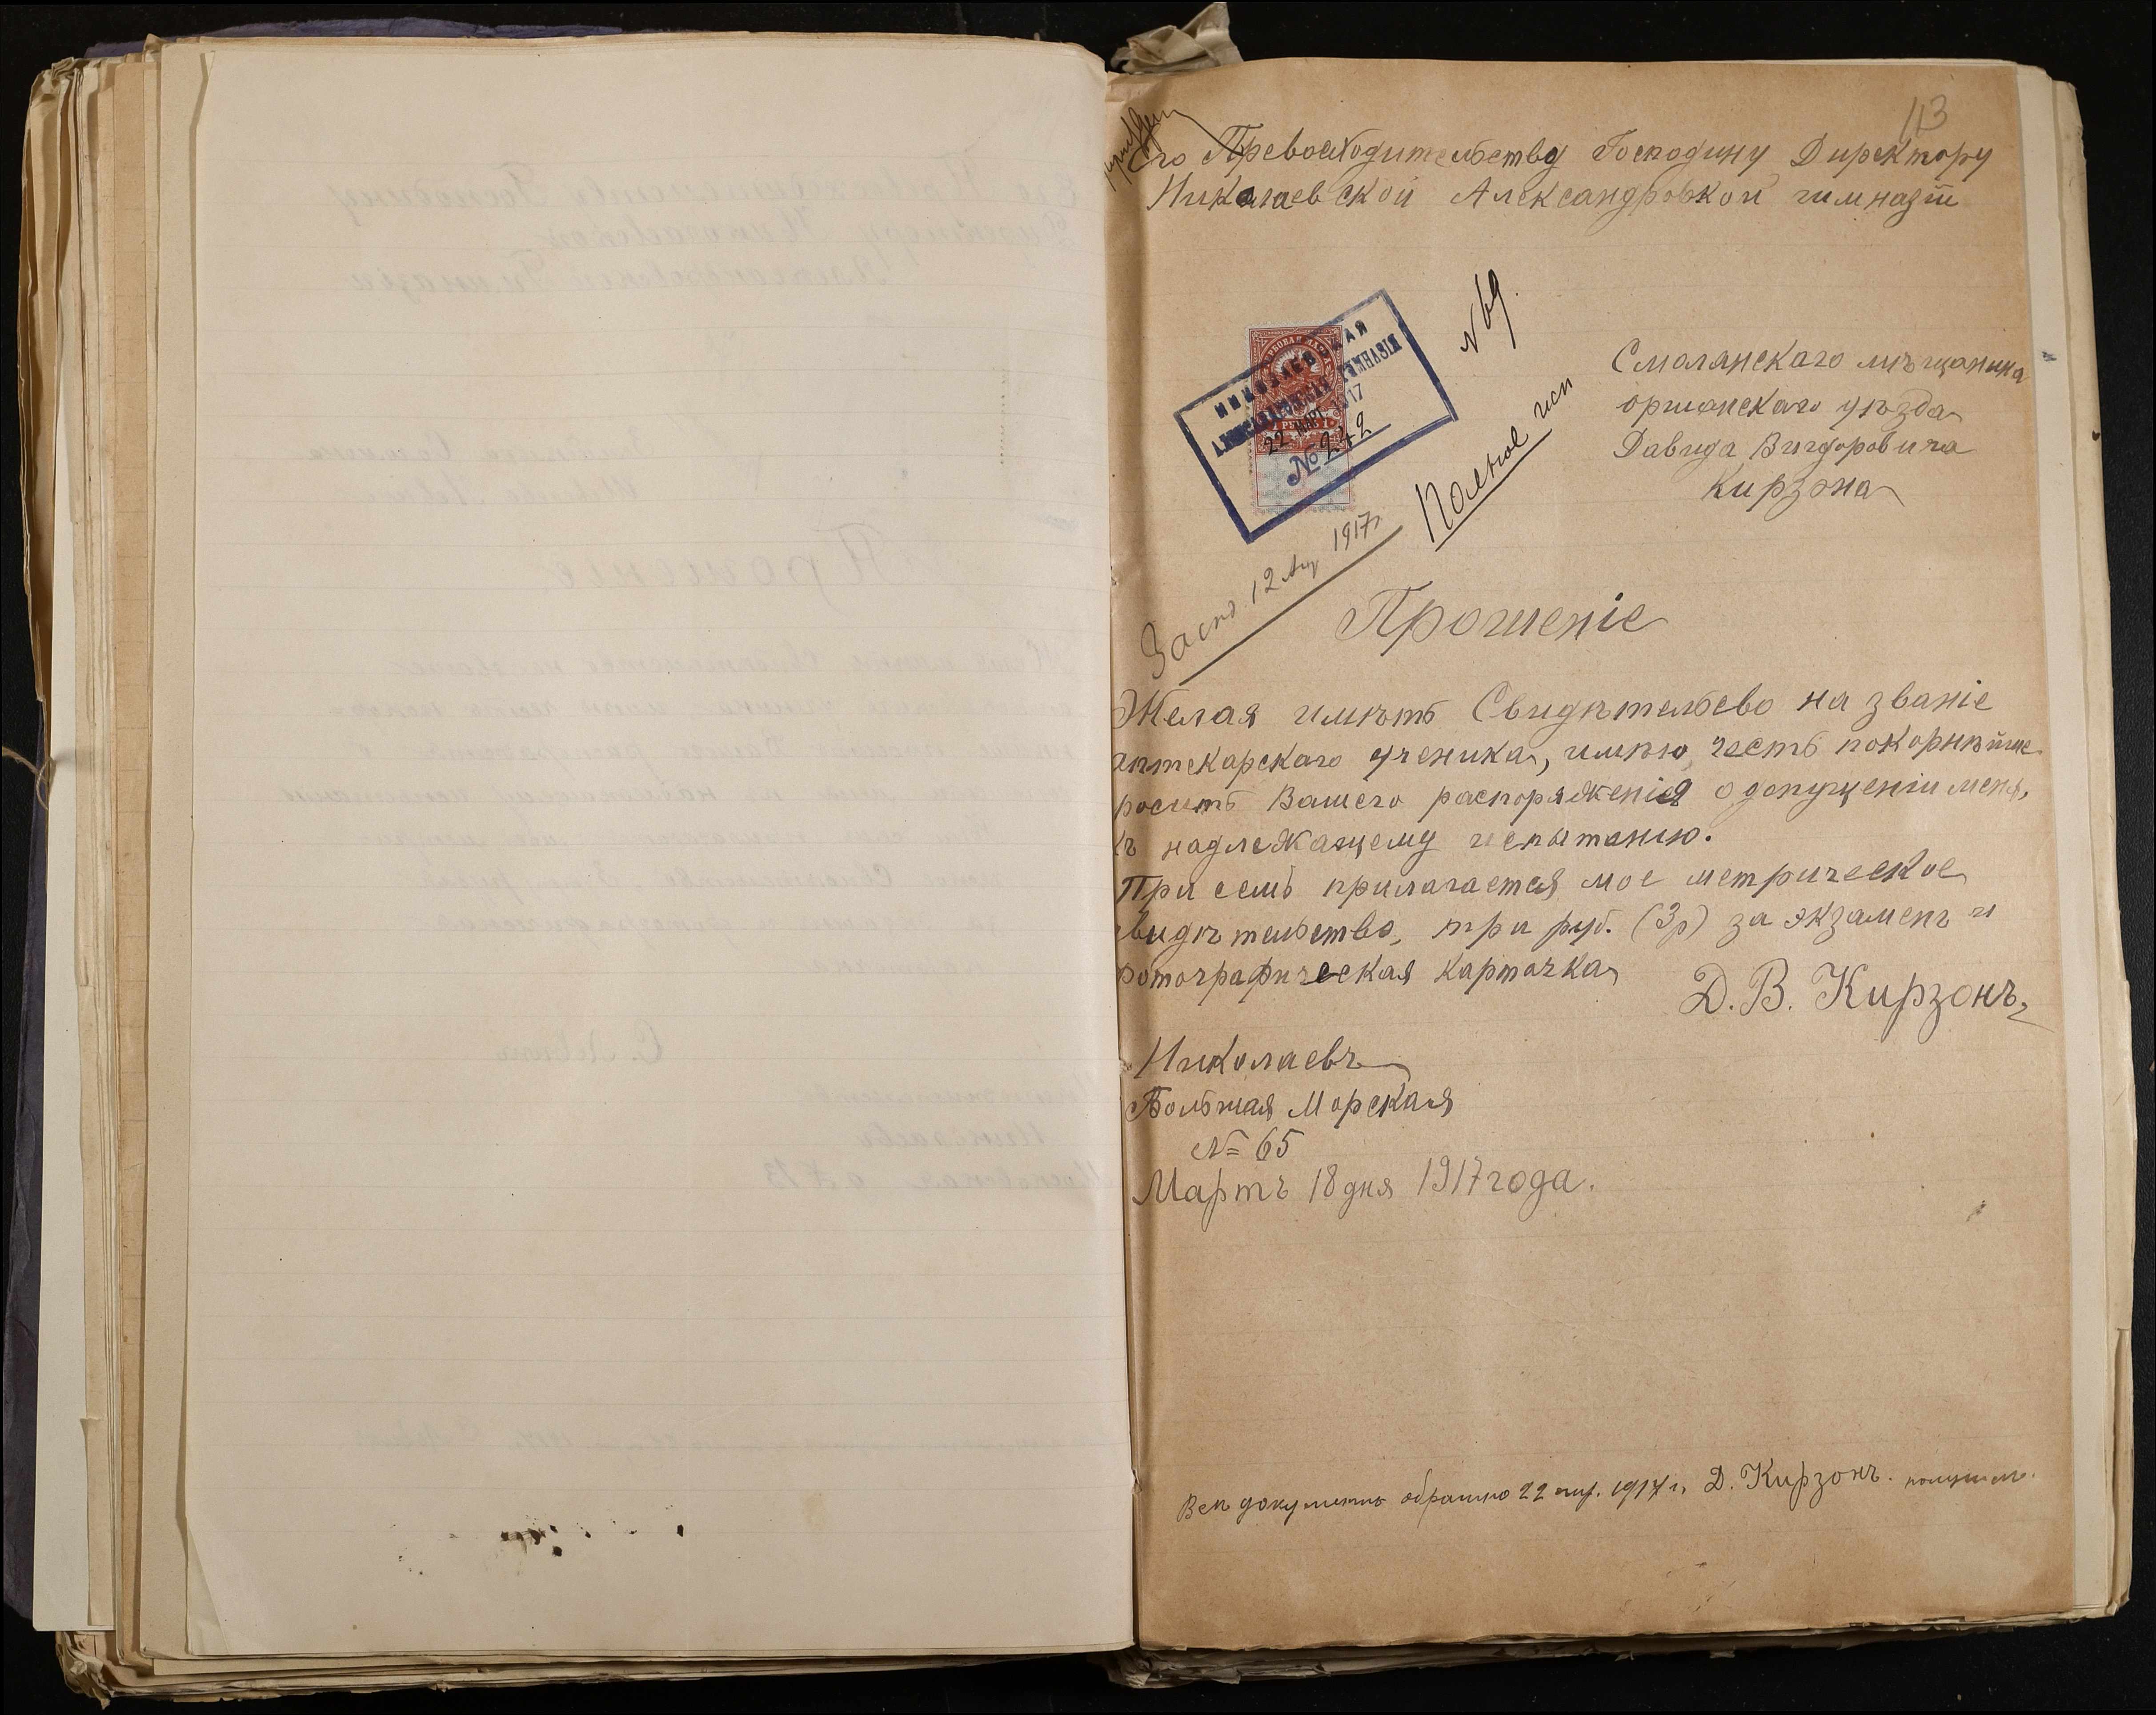 113
Его Превосходительству Господину Директору
Николаевской Александровской гимназіи
№ 69.
НИКОЛАЕВСКАЯ
АЛЕКСАНДРОВСКАЯ ГИМНАЗІЯ
22 МАР. 1917
№ 242
1 РУБ 1
Смолянскаго мѣщанина
оршанскаго уѣзда
Давида Вигдоровича
Кирзона
12 Апр 1917г
Прошеніе
Желая имѣть Свидѣтельсво на званіе
аптекарскаго ученика, имѣю честь покорнѣйше
росить Вашего распоряженія о допущеніи меня,
къ надлежащему испытанію.
При семъ прилагается мое метрическое
видѣтельство, три руб. (3р) за экзаменъ и
фотографическая карточка
Д. В. Кирзонъ
Николаевъ
Большая Морская
№ 65
Мартъ 18 дня 1917 года.
Всѣ документы обратно 22 апр. 1917 г. Д. Кирзонъ. получилъ.